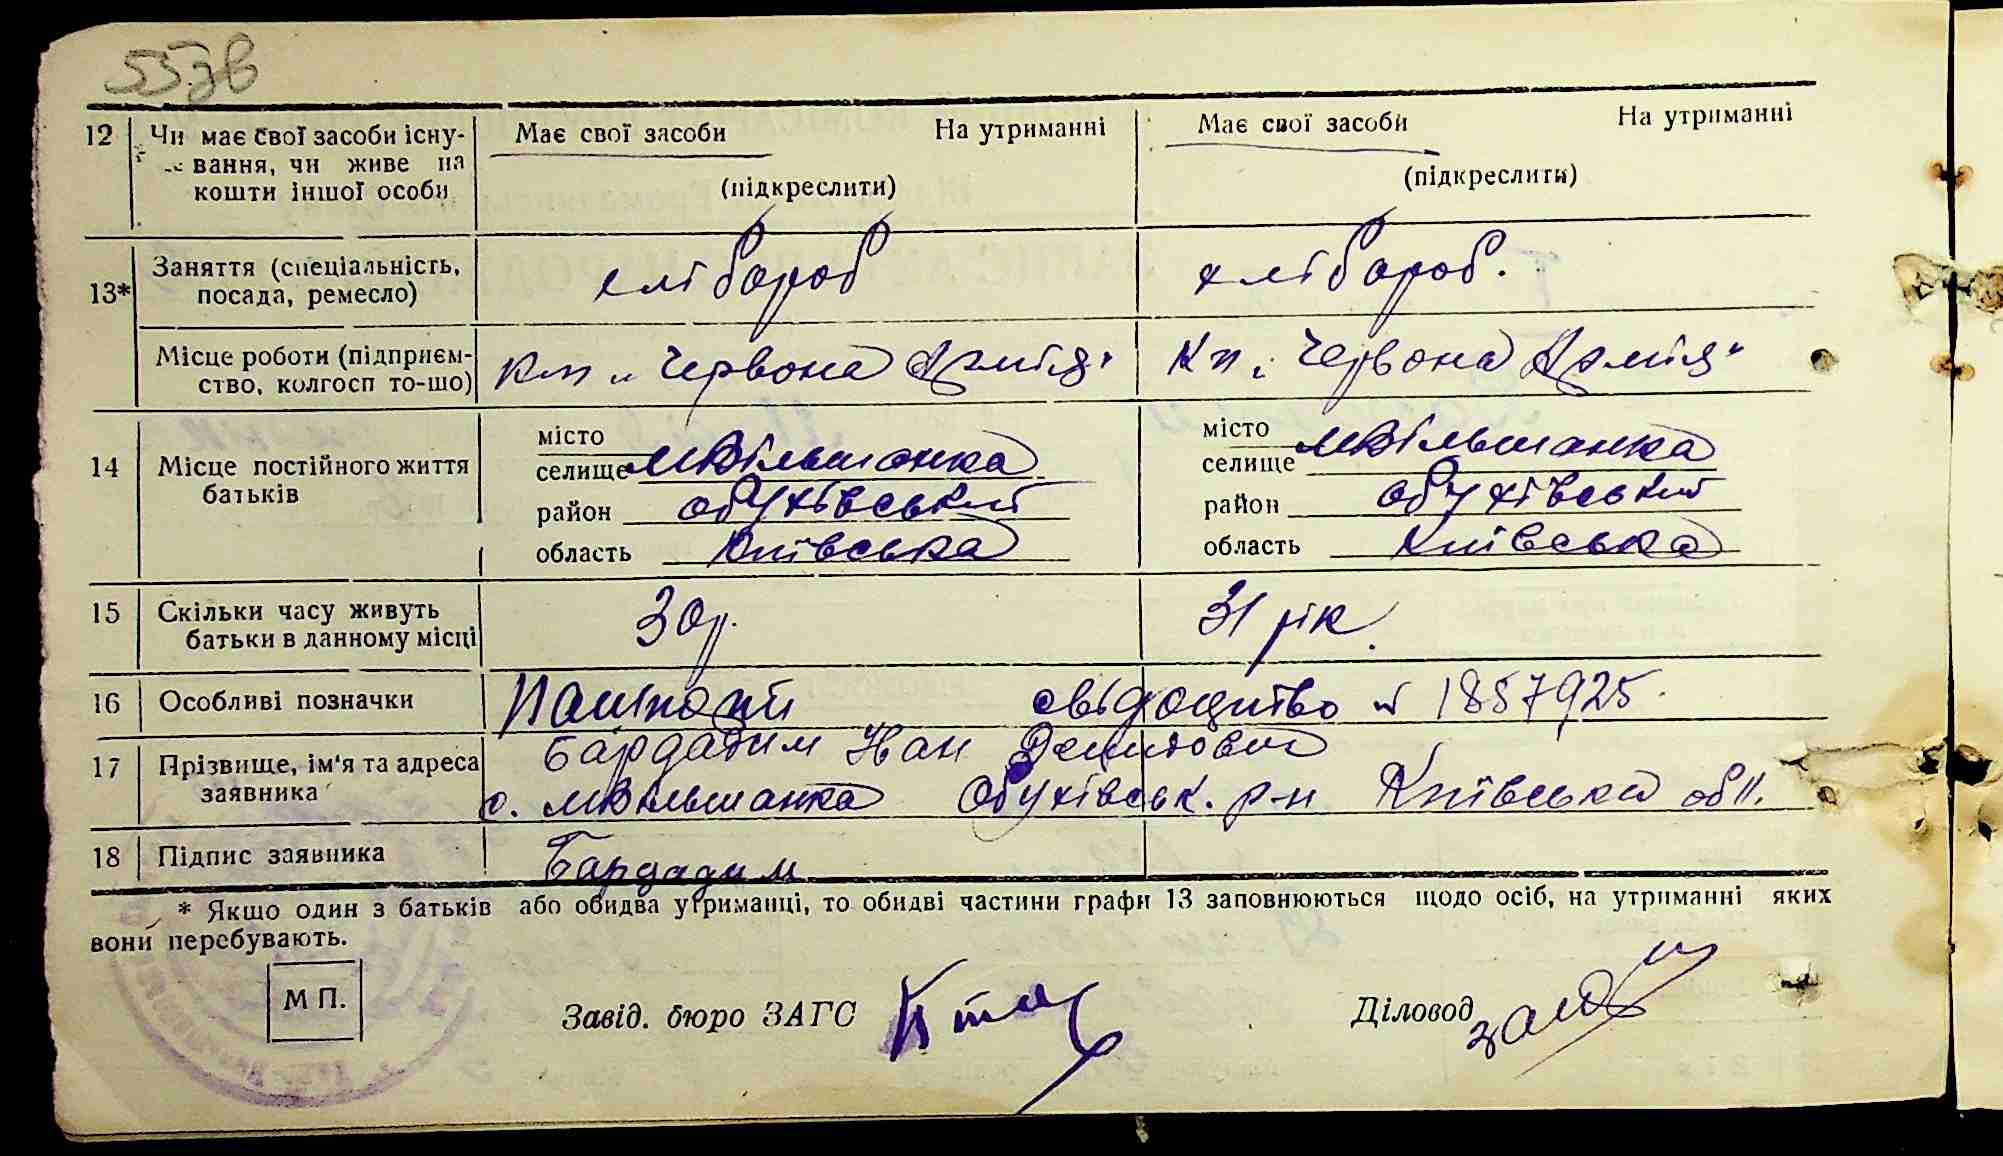 55зв
12 Чи має свої засоби існу- Має свої засоби На утриманні Має свої засоби На утриманні
вання, чи живе на
кошти іншої особи (підкреслити) (підкреслити)
13* Заняття (спеціальність, хлібороб хлібороб.
посада, ремесло)
Місце роботи (підприєм- Кт „Червона Армія" Кт „Червона Армія"
ство, колгосп то-шо)
14 Місце постійного життя місто місто
батьків селище МВільшанка селище МВільшанка
район Обухівський район Обухівський
область Київська область Київська
15 Скільки часу живуть 30р. 31 рік.
батьки в данному місці
16 Особливі позначки свідоцтво № 1857925.
17 Прізвище, ім'я та адреса Бардадим Іван Демидович
заявника с. МВільшанка Обухівськ. р-н Київська обл.
18 Підпис заявника Бардадим
* Якшо один з батьків або обидва утриманці, то обидві частини графи 13 заповнюються щодо осіб, на утриманні яких
вони перебувають.
М П. Завід. бюро ЗАГС Діловод